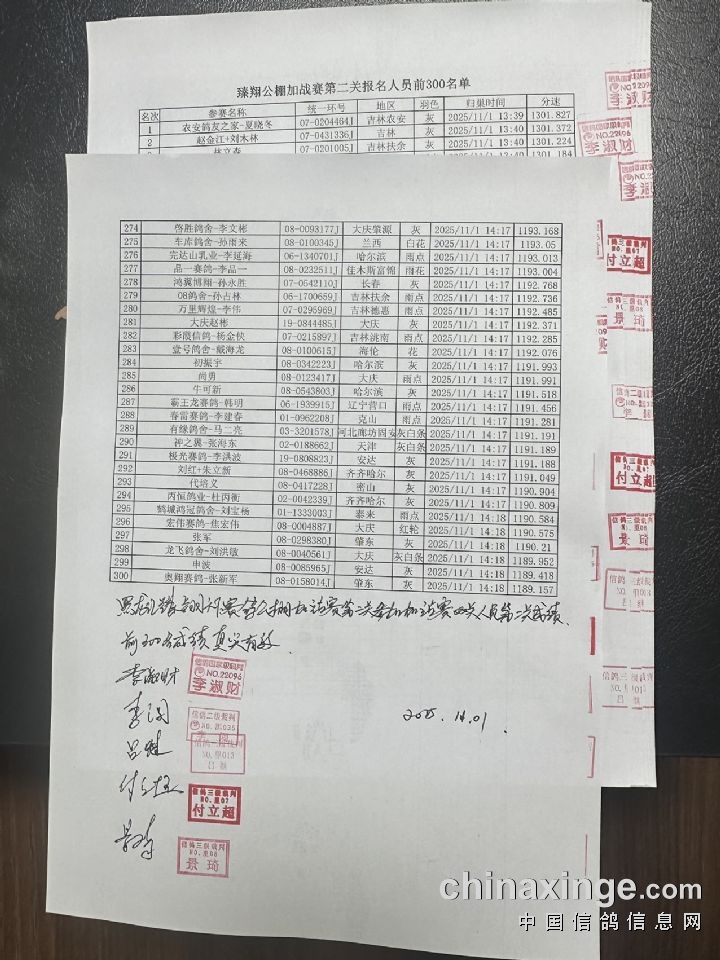 臻翔公棚加战赛第二关报名人员前300名单
名次 参赛名称 统一环号 地区 羽色 归巢时间 分速
1 农安鸽友之家-夏晓冬 07-0204464J 吉林农安 灰 2025/11/1 13:39 1301.827
2 赵金江+刘木林 07-0431336J 吉林 灰 2025/11/1 13:40 1301.372
07-0201005J 吉林扶余 灰 2025/11/1 13:40 1301.224
1301.184
274 啓胜鸽舍-李文彬 08-0093177J 大庆肇源 灰 2025/11/1 14:17 1193.168
275 车库鸽舍-孙雨来 08-0100345J 兰西 白花 2025/11/1 14:17 1193.05
276 完达山乳业-李延海 06-1340701J 哈尔滨 雨点 2025/11/1 14:17 1193.013
277 品一赛鸽-李品一 08-0232511J 佳木斯富锦 雨花 2025/11/1 14:17 1193.004
278 鸿翼博翔-孙永胜 07-0542110J 长春 灰 2025/11/1 14:17 1192.768
279 08鸽舍-孙占林 06-1700659J 吉林扶余 雨点 2025/11/1 14:17 1192.736
280 万里辉煌-李伟 07-0296969J 吉林德惠 雨点 2025/11/1 14:17 1192.485
281 大庆赵彬 19-0844485J 大庆 灰 2025/11/1 14:17 1192.371
282 彩霞信鸽-杨金侠 07-0215271J 吉林洮南 雨点 2025/11/1 14:17 1192.285
283 壹号鸽舍-戴海龙 08-0100615J 海伦 花 2025/11/1 14:17 1192.076
284 初振宇 08-0342223J 哈尔滨 灰 2025/11/1 14:17 1191.993
285 尚勇 08-0123417J 大庆 雨点 2025/11/1 14:17 1191.991
286 牛可新 08-0543803J 哈尔滨 灰 2025/11/1 14:17 1191.518
287 霸王龙赛鸽-韩明 06-1939915J 辽宁营口 雨点 2025/11/1 14:17 1191.456
288 春雷赛鸽-李建春 01-0962208J 克山 雨点 2025/11/1 14:17 1191.281
289 有缘鸽舍-马二亮 03-3201578J 河北廊坊固安 灰白条 2025/11/1 14:17 1191.191
290 神之翼-张海东 02-0188662J 天津 灰白条 2025/11/1 14:17 1191.189
291 极光赛鸽-李洪波 19-0808823J 安达 灰 2025/11/1 14:17 1191.188
292 刘红+朱立新 08-0468886J 齐齐哈尔 灰 2025/11/1 14:17 1191.049
293 代培义 08-0417228J 密山 灰 2025/11/1 14:17 1190.904
294 丙恒鸽业-杜丙衡 02-0042339J 齐齐哈尔 灰 2025/11/1 14:17 1190.809
295 鹤城鸿冠鸽舍-刘宝杨 01-1333003J 泰来 雨点 2025/11/1 14:18 1190.584
296 宏伟赛鸽-焦宏伟 08-0004887J 大庆 红轮 2025/11/1 14:18 1190.575
297 张军 08-0298380J 肇东 灰 2025/11/1 14:18 1190.21
298 龙飞鸽舍-刘洪敏 08-0040561J 大庆 灰白条 2025/11/1 14:18 1189.957
299 申波 08-0085965J 安达 灰 2025/11/1 14:18 1189.418
300 奥翔赛鸽-张新军 08-0158014J 肇东 灰 2025/11/1 14:18 1189.157
前300名成绩真实有效
李淑财
信鸽国家级裁判
NO.22096
李淑财
2025.11.01.
信鸽二级裁判
付立超
信鸽三级裁判
NO.黑07
付立超
景琦
信鸽三级裁判
NO.黑08
景琦
chinaxinge.com
中国信鸽信息网